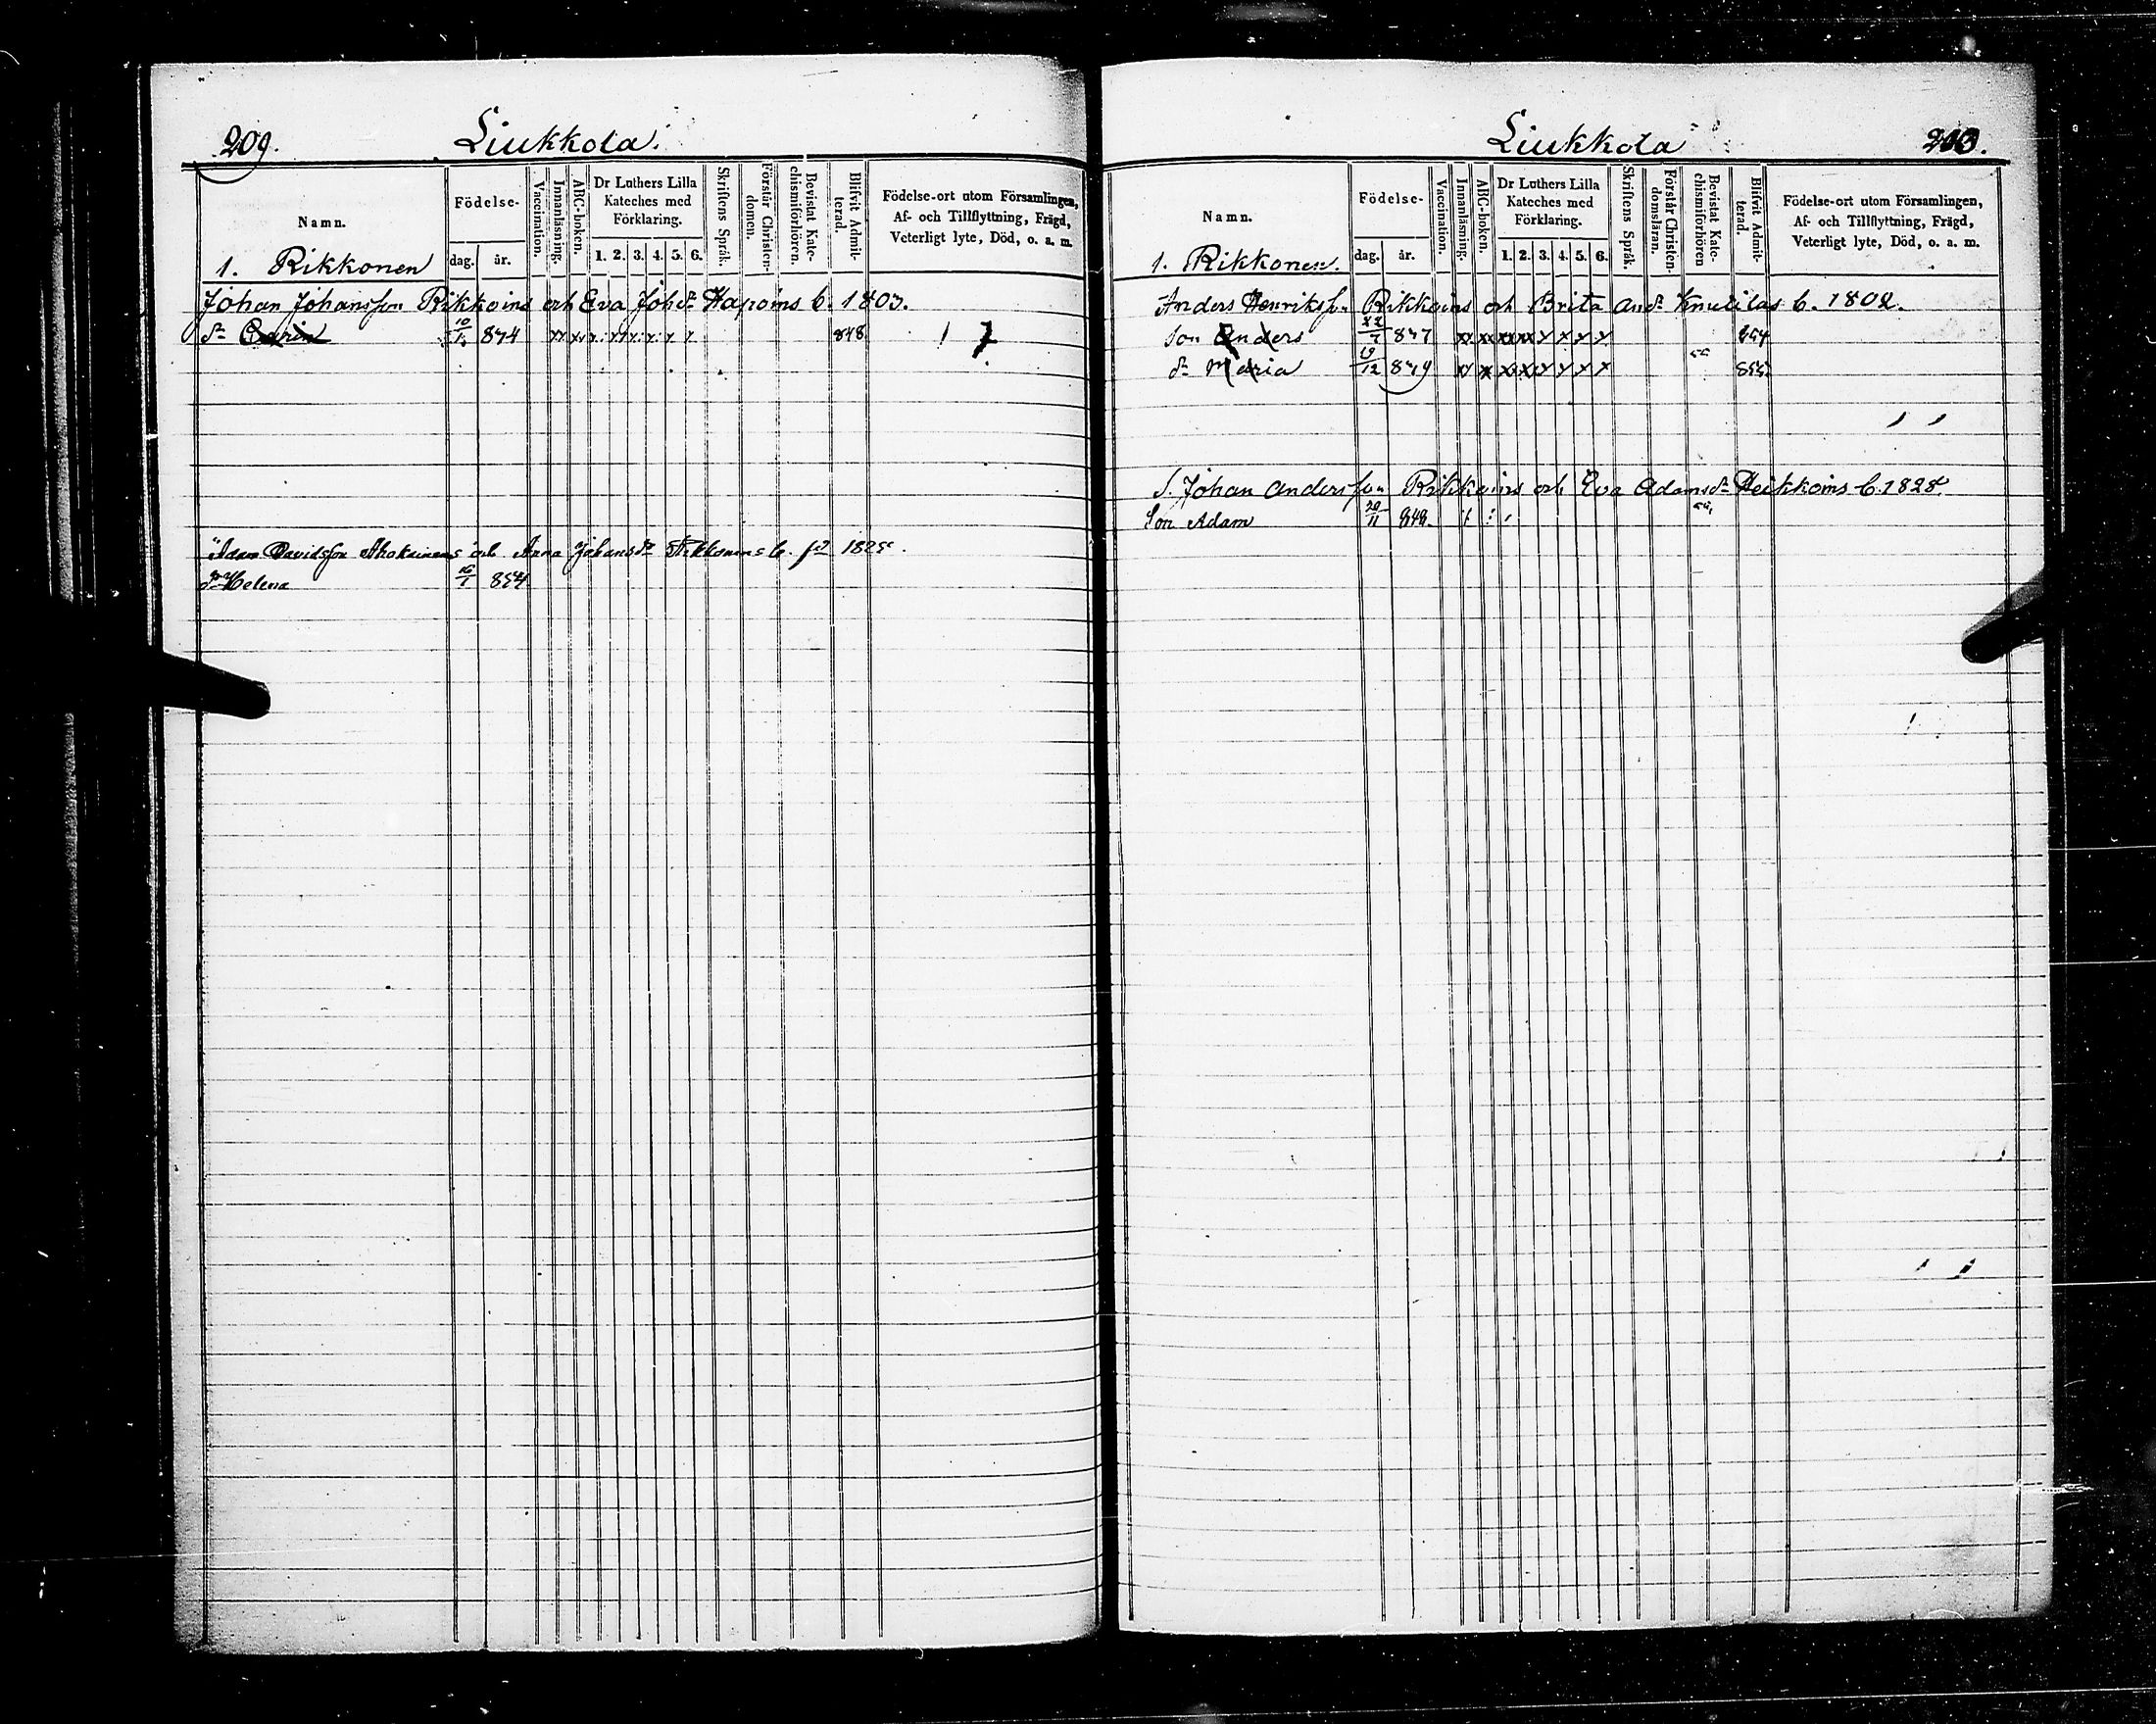 209.
Liukkola.
Namn.
Födelse-
dag. år.
Vaccination.
Innanläsning.
ABC-boken.
Dr Luthers Lilla
Kateches med
Förklaring.
1. 2. 3. 4. 5. 6.
Skriftens Språk.
Förstår Christen-
domen.
Bevistat Kate-
chismiförhören.
Blifvit Admit-
terad.
Födelse-ort utom Församlingen,
Af- och Tillflyttning, Frägd,
Veterligt lyte, Död, o. a. m.
1. Rikkonen
Johan Johansson Rikkoins och Eva Joh dr Hapoins C. 1803.
dr 848
Adam Davidsson och Anna Johans dr
dr Helena 16/1 854
Liukkola
Namn.
Födelse-
dag. år.
Vaccination.
Innanläsning.
ABC-boken.
Dr Luthers Lilla
Kateches med
Förklaring.
1. 2. 3. 4. 5. 6.
Skriftens Språk.
Förstår Christen-
domsläran.
Bevistat Kate-
chismiförhören
Blifvit Admit-
terad.
Födelse-ort utom Församlingen,
Af- och Tillflyttning, Frägd,
Veterligt lyte, Död, o. a. m.
1. Rikkonen.
Anders Henriksson Rikkoins och Brita And dr Knutilas C. 1802.
Son Anders
dr Maria 19/12
S. Johan Andersson Rikkoins och Eva Adams dr Heikkoins C. 1828.
Son Adam 20/11